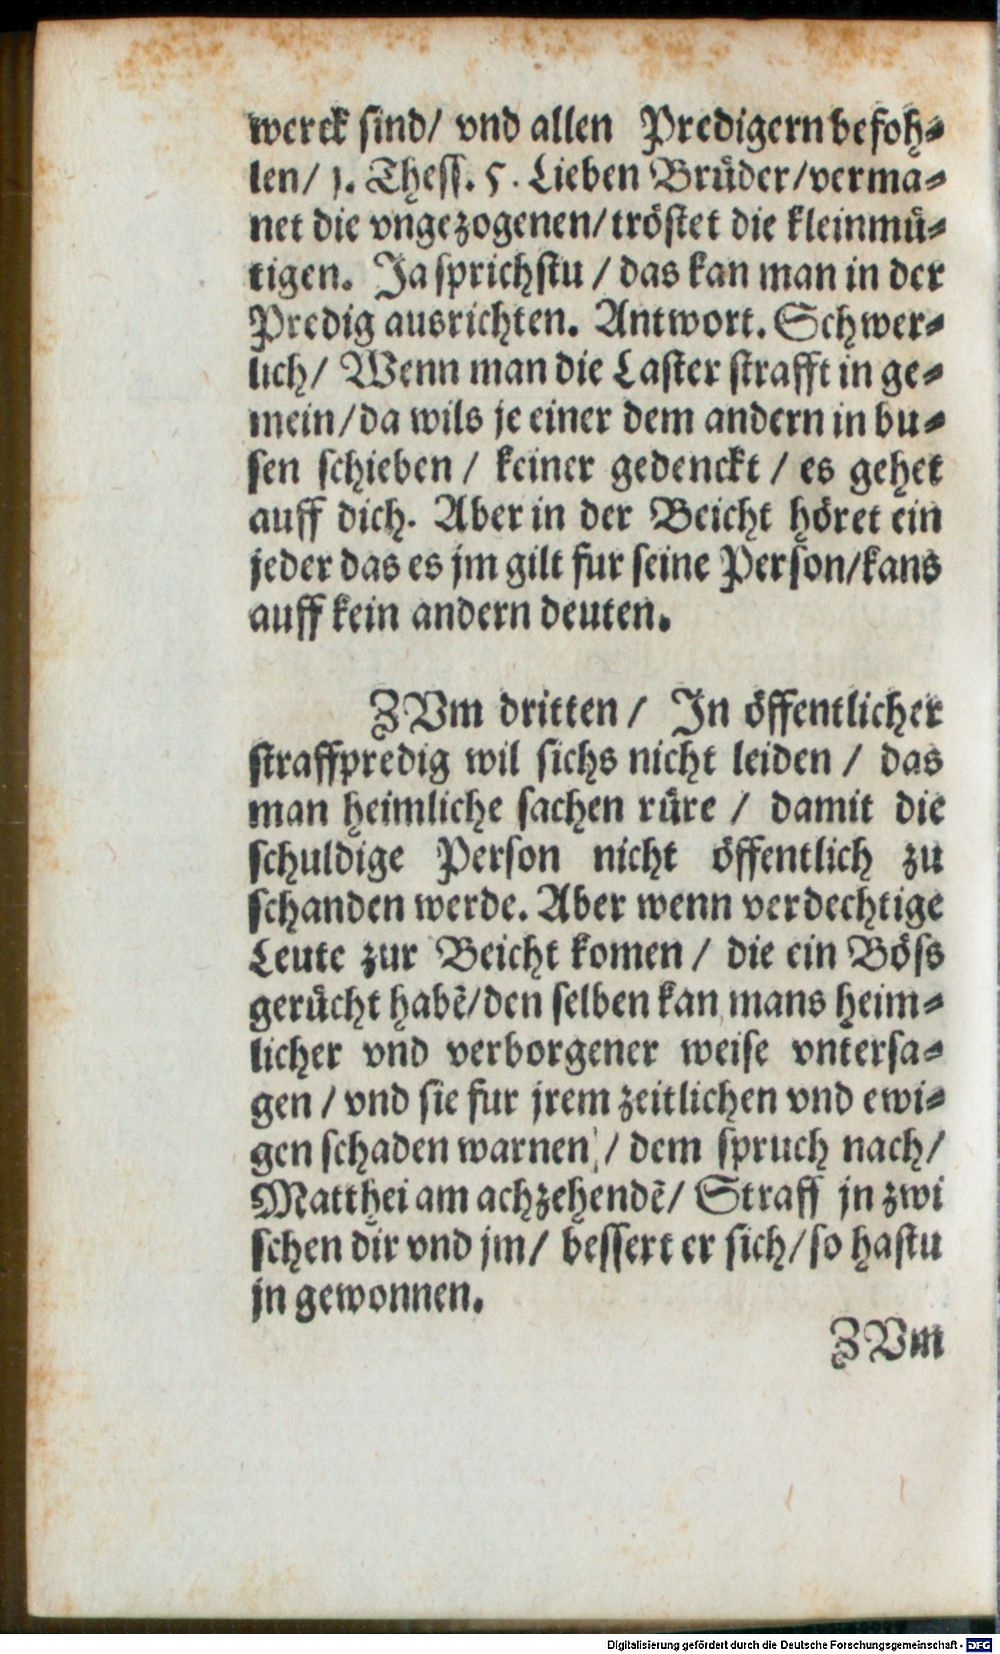 werck sind/ vnd allen Predigern befoh⸗
len/ 1. Thess. 5. Lieben Brüder/verma⸗
net die vngezogenen/tröstet die kleinmü⸗
tigen. Ja sprichstu / das kan man in der
Predig ausrichten. Antwort. Schwer⸗
lich/ Wenn man die Laster strafft in ge⸗
mein/da wils je einer dem andern in bu⸗
sen schieben / keiner gedenckt / es gehet
auff dich. Aber in der Beicht höret ein
jeder das es jm gilt fur seine Person/kans
auff kein andern deuten.
ZVm dritten / In öffentlicher
straffpredig wil sichs nicht leiden / das
man heimliche sachen rüre / damit die
schuldige Person nicht öffentlich zu
schanden werde. Aber wenn verdechtige
Leute zur Beicht komen / die ein Böss
gerücht habẽ/den selben kan mans heim⸗
licher vnd verborgener weise vntersa⸗
gen / vnd sie fur jrem zeitlichen vnd ewi⸗
gen schaden warnen / dem spruch nach/
Matthei am achzehendẽ/ Straff jn zwi
schen dir vnd jm/ bessert er sich/so hastu
jn gewonnen.
ZVm
Digitalisierung gefördert durch die Deutsche Forschungsgemeinschaft - DFG